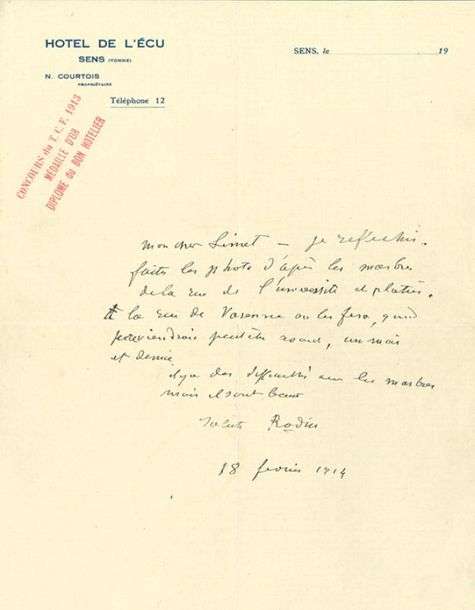 HOTEL DE L'ÉCU
SENS (YONNE)
N. COURTOIS
PROPRIÉTAIRE
Téléphone 12
SENS, le 19
CONCOURS du T. C. F. 1913
MÉDAILLE D'OR
DIPLOME du BON HOTELIER
mon cher Limet — je reflechis.
faites les photo d'après les marbres
de la rue de l'université et platres.
la rue de Varenne on les fera, quand
je reviendrais peut être avant, un mois
et demie
il y a des difficultés sur les marbres
mais ils sont beaux
Rodin
18 fevrier 1914